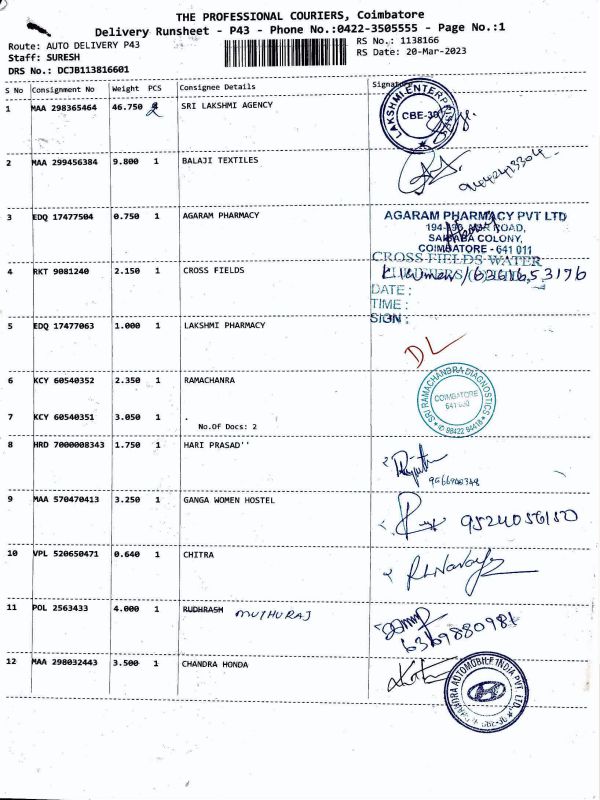 THE PROFESSIONAL COURIERS, Coimbatore
Delivery Runsheet - P43 - Phone No.:0422-3505555 - Page No.:1
Route: AUTO DELIVERY P43
RS No.: 1138166
Staff: SURESH
RS Date: 20-Mar-2023
DRS No.: DCJB113816601
S No Consignment No Weight PCS Consignee Details Signature
1 MAA 298365464 46.750 2 SRI LAKSHMI AGENCY
LAKSHMI ENTERPRISES
CBE-30
2 MAA 299456384 9.800 1 BALAJI TEXTILES
3 EDQ 17477504 0.750 1 AGARAM PHARMACY
AGARAM PHARMACY PVT LTD
ROAD,
SAIBABA COLONY,
COIMBATORE - 641 011
4 RKT 9081240 2.150 1 CROSS FIELDS
CROSS FIELDS WATER
DATE :
TIME :
SIGN :
5 EDQ 17477063 1.000 1 LAKSHMI PHARMACY
DL
6 KCY 60540352 2.350 1 RAMACHANRA
SRI RAMACHANDRA DIAGNOSTICS
COIMBATORE
7 KCY 60540351 3.050 1 .
No.Of Docs: 2
8 HRD 7000008343 1.750 1 HARI PRASAD''
9 MAA 570470413 3.250 1 GANGA WOMEN HOSTEL
9524056150
10 VPL 520650471 0.640 1 CHITRA
11 POL 2563433 4.000 1 RUDHRASM MUTHURAJ
6369880981
12 MAA 298032443 3.500 1 CHANDRA HONDA
CHANDRA AUTOMOBILE INDIA PVT. LTD.